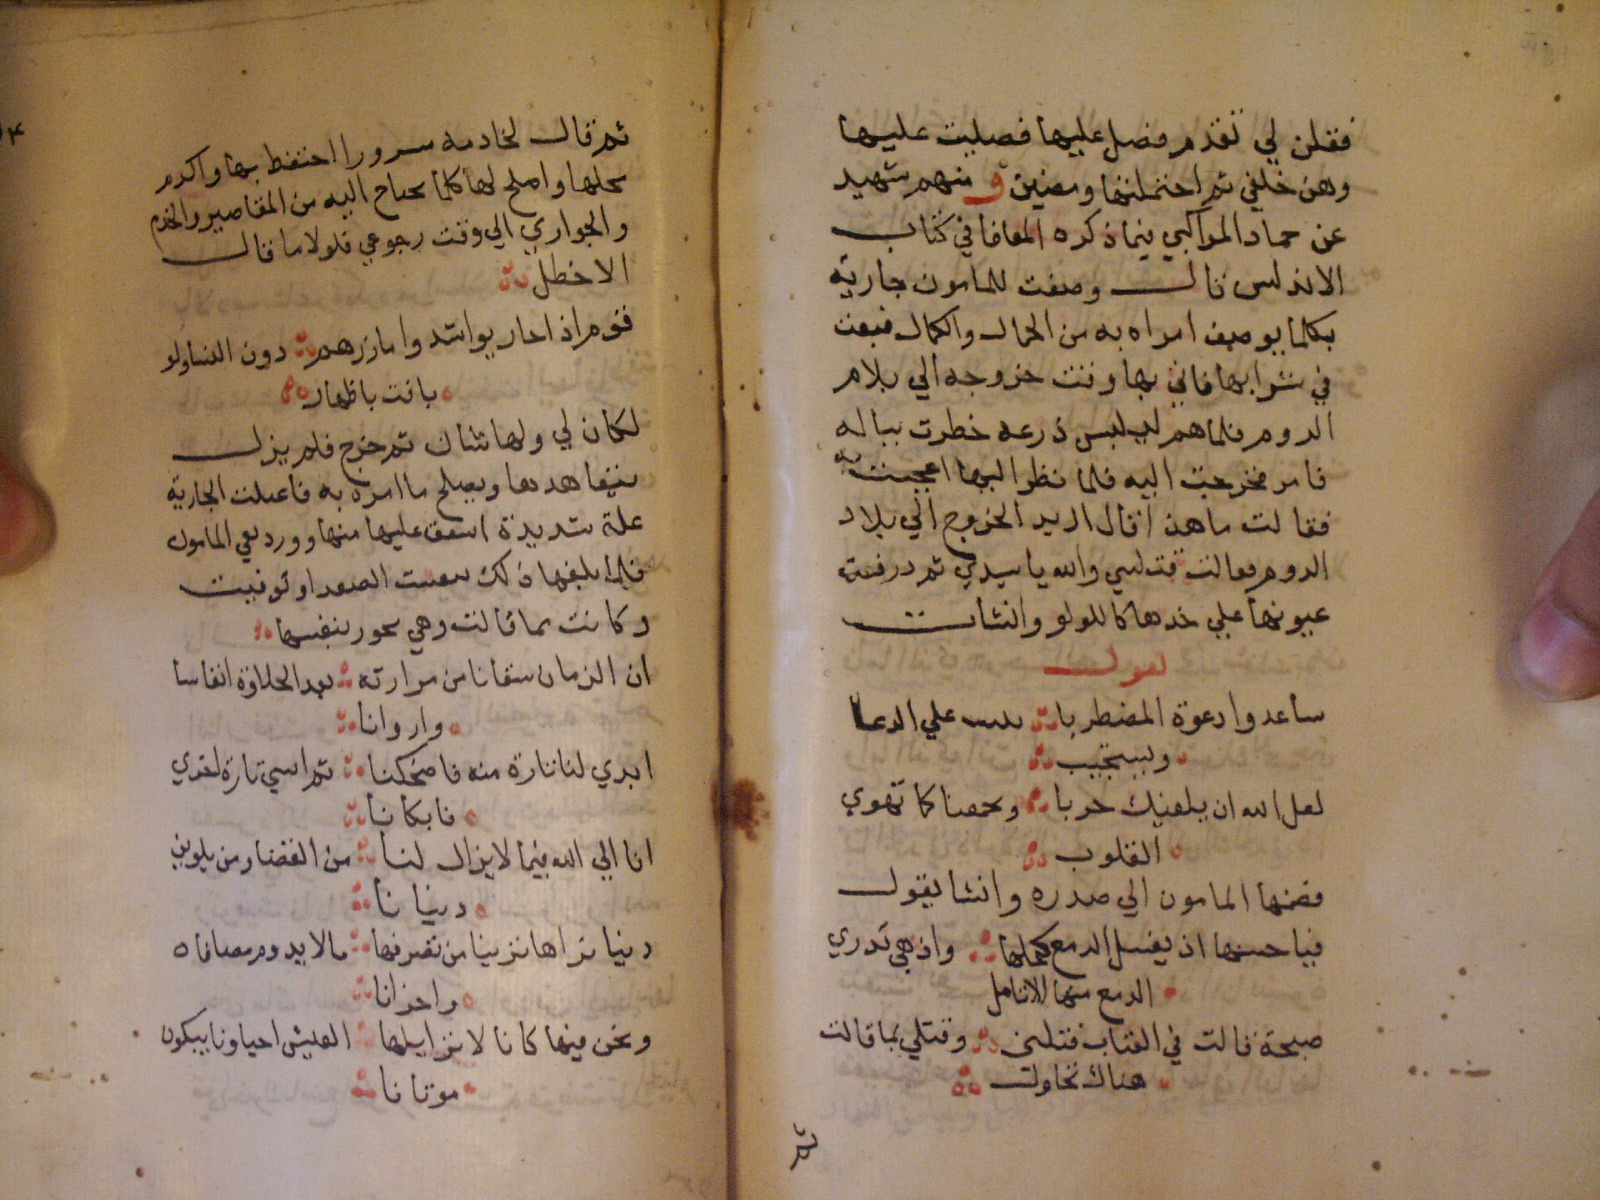 فقلن لي تقدم فصل عليها فصليت عليها
وهن خلفي ثم احتملنها ومضين و منهم شهيد
عن حماد المراكبي فيما ذكره المعافا في كتاب
الاندلس قال وصفت للمامون جارية
بكلما يوصف امراه به من الجمال والكمال فبعث
في شرابها فاتي بها وقت خروجه الي بلام
الروم فلما هم ليلبس ذرعه خطرت بباله
فامر فخرجت اليه فلما نظر اليها اعجبت به
فقالت ما هذا قال اريد الخروج الي بلاد
الروم فقالت قتلتني والله يا سيدي ثم درفت
عيونها علي خدها كاللولو وانشات
تقول
ساعدوا دعوة المضطر با علي الدعا
ويستجيب
لعل الله ان يكفيك حربا ويجمعنا كما تهوي
القلوب
فضمها المامون الي صدره وانشا يقول
فيا حسنها اذ يغسل الدمع كحلها واذ هي تدري
الدمع منها الانامل
صبحة قالت في العتاب قتلتني وقتلي بما قالت
هناك تحاول
ثم قال لخادمه سرورا احتفظ بها واكرم
محلها واصلح لها كلما يحتاج اليه من المقاصير والخدم
والجواري الي وقت رجوعي فلولا ما قال
الاخطل
قوم اذا حاربوا شدوا مازرهم دون النسا ولو
باتت باظهار
لكان لي ولها شان ثم خرج فلم يزل
يتعاهدها ويصلح ما امره به فاعتلت الجارية
علة شديدة اشفق عليها منها وورد نعي المامون
فلما بلغها ذلك تنفست الصعدا وتوفيت
وكانت مما قالت وهي تجود بنفسها
ان الزمان سقانا من مرارته بعد الحلاوة انفاسا
واروانا
ابدي لنا تارة منه فاضحكنا ثم انثني تارة اخري
فابكانا
انا الي الله فيما لا يزال لنا من القضا ومن تلوين
دنيانا
دنيا تراها ترينا من تصرفها ما لا يدوم مصافاه
واحزانا
ونحن فيها كانا لا نزايلها العيش احيا ونا يبكون
موتانا